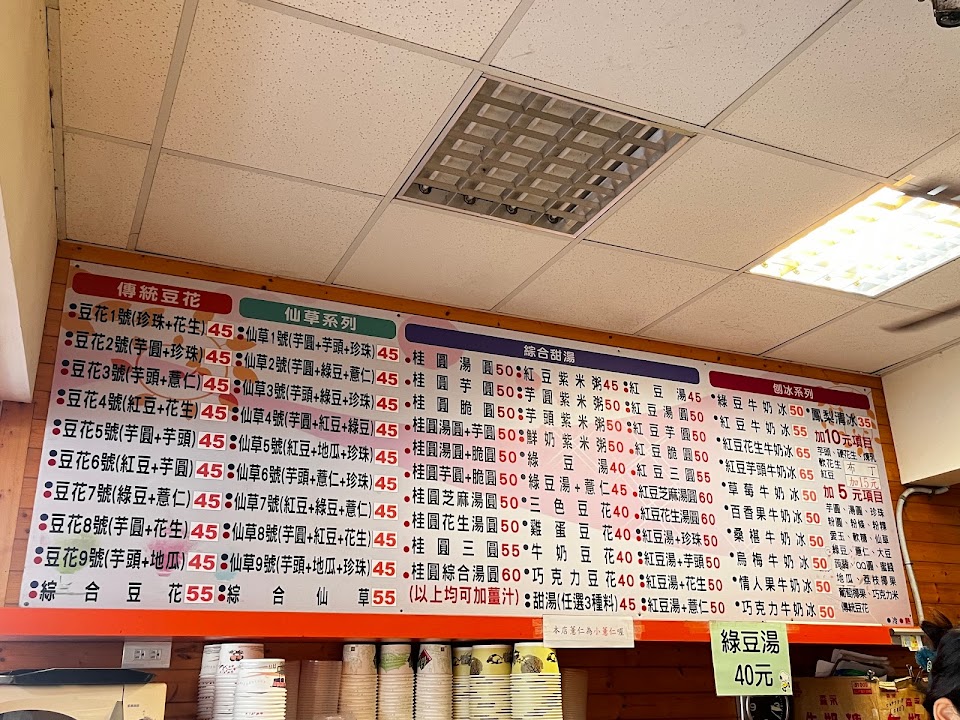 傳統豆花
豆花1號(珍珠+花生)45
豆花2號(芋圓+珍珠)45
豆花3號(芋頭+薏仁)45
豆花4號(紅豆+花生)45
豆花5號(芋圓+芋頭)45
豆花6號(紅豆+芋圓)45
豆花7號(綠豆+薏仁)45
豆花8號(芋圓+花生)45
豆花9號(芋頭+地瓜)45
綜合豆花55
仙草系列
仙草1號(芋圓+芋頭+珍珠)45
仙草2號(芋圓+綠豆+薏仁)45
仙草3號(芋頭+綠豆+珍珠)45
仙草4號(芋圓+紅豆+綠豆)45
仙草5號(紅豆+地瓜+珍珠)45
仙草6號(芋頭+薏仁+珍珠)45
仙草7號(紅豆+綠豆+薏仁)45
仙草8號(芋圓+紅豆+花生)45
仙草9號(芋頭+地瓜+珍珠)45
綜合仙草55
綜合甜湯
桂圓湯圓50
桂圓芋圓50
桂圓脆圓50
桂圓湯圓+芋圓50
桂圓湯圓+脆圓50
桂圓芋圓+脆圓50
桂圓芝麻湯圓50
桂圓花生湯圓50
桂圓三圓55
桂圓綜合湯圓60
(以上均可加薑汁)
紅豆紫米粥45
芋圓紫米粥50
芋頭紫米粥50
鮮奶紫米粥50
綠豆湯40
綠豆湯+薏仁45
三色豆花40
雞蛋豆花40
牛奶豆花40
巧克力豆花40
甜湯(任選3種料)45
紅豆湯45
紅豆湯圓50
紅豆芋圓50
紅豆脆圓50
紅豆三圓55
紅豆芝麻湯圓60
紅豆花生湯圓60
紅豆湯+珍珠50
紅豆湯+芋頭50
紅豆湯+花生50
紅豆湯+薏仁50
刨冰系列
綠豆牛奶冰50
紅豆牛奶冰55
紅豆花生牛奶冰65
紅豆芋頭牛奶冰65
草莓牛奶冰50
百香果牛奶冰50
桑椹牛奶冰50
烏梅牛奶冰50
情人果牛奶冰50
巧克力牛奶冰50
鳳梨清冰35
加10元項目
芋頭、硬花生、煉乳
軟花生
紅豆
布丁
加15元
加5元項目
芋圓、湯圓、珍珠
粉圓、粉條、粉粿
愛玉、軟糖、仙草
綠豆、薏仁、大豆
地瓜、荔枝椰果
葡萄椰果、巧克力米
傳統豆花
冷 熱
本店薏仁為小薏仁喔
綠豆湯
40元